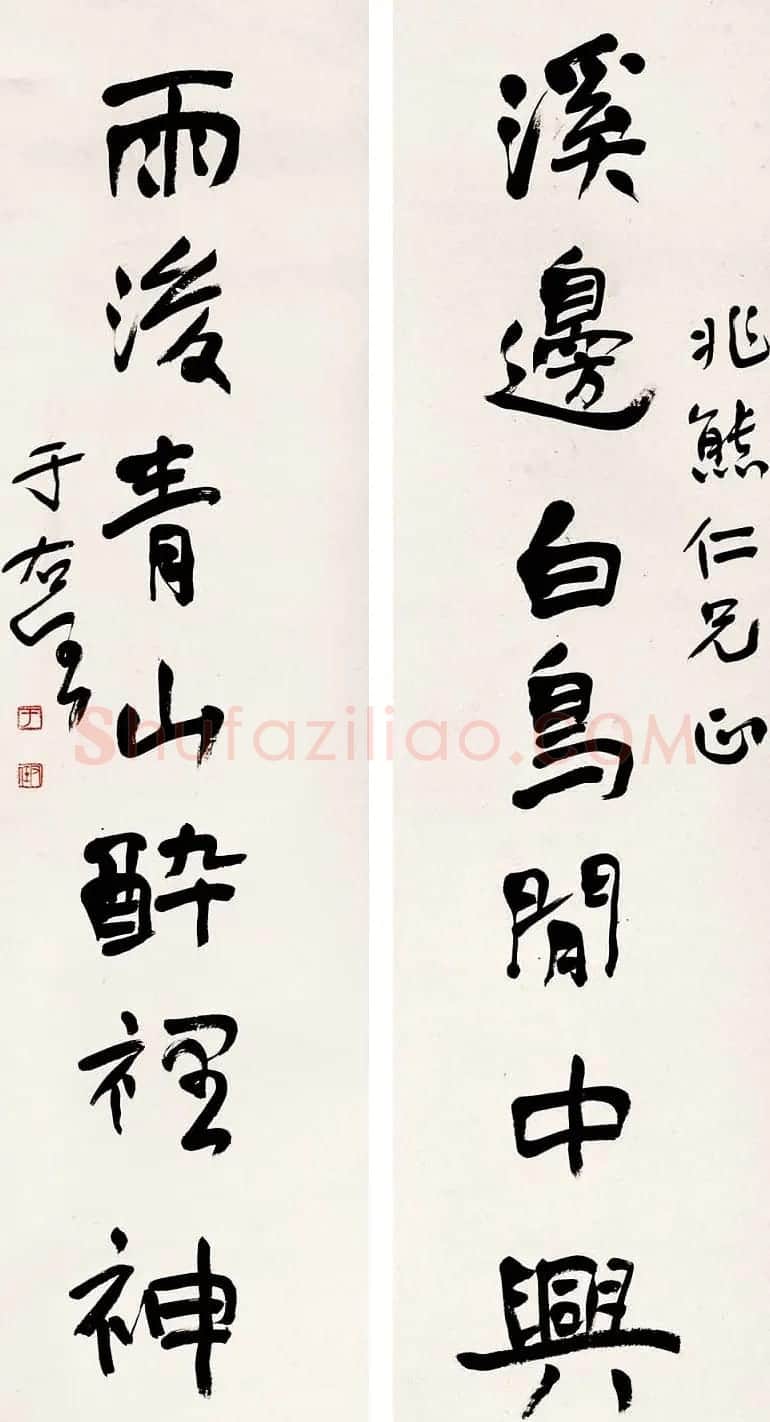 兆熊仁兄正
溪邊白鳥閒中興
雨後青山醉裡神
于右任
Shufaziliao.COM